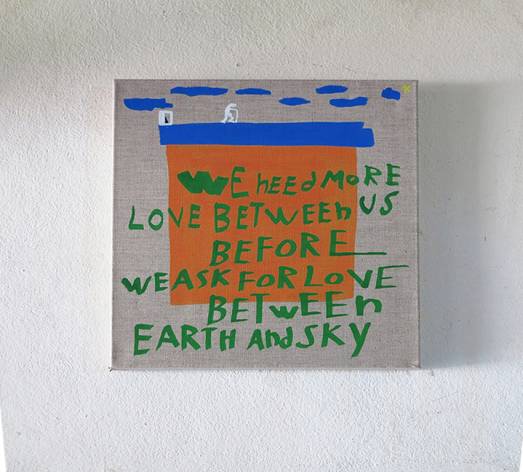 WE nEEd MoRE
LOVE BETWEEn US
BEFORE
WE ASK FOR LOVE
BETWEEn
EARTH And SKY